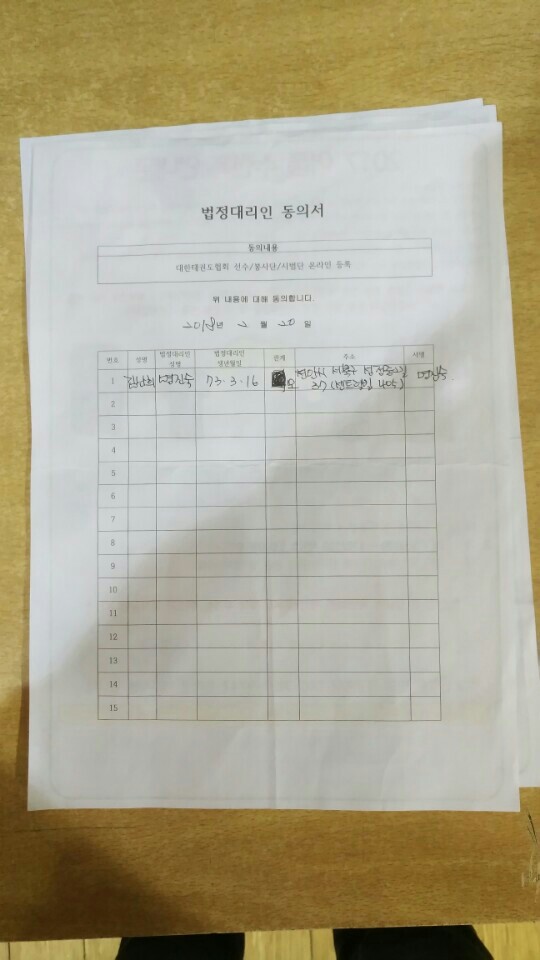 법정대리인 동의서
동의내용
대한태권도협회 선수/봉사단/시범단 온라인 등록
위 내용에 대해 동의합니다.
2018년 2 월 20 일
번호 성명 법정대리인 성명 법정대리인 생년월일 관계 주소 서명
1 73.3.16 모 천안시 서북구
2
3
4
5
6
7
8
9
10
11
12
13
14
15